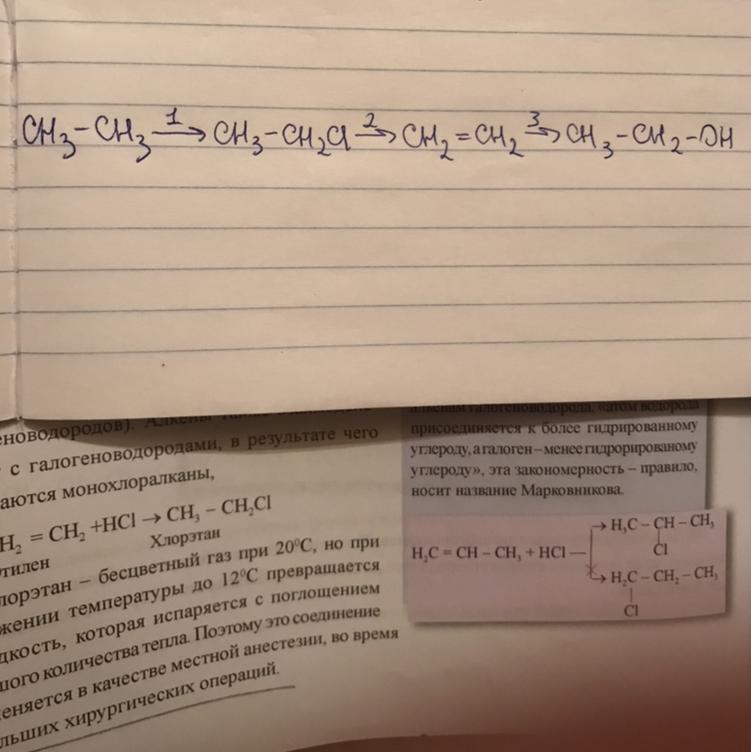 CH₃–CH₃ →1 CH₃–CH₂Cl →2 CH₂=CH₂ →3 CH₃–CH₂–OH
с галогеноводородами, в результате чего
монохлоралканы,
CH₂ + HCl → CH₃ – CH₂Cl
Хлорэтан
– бесцветный газ при 20⁰С, но при
температуры до 12⁰С превращается
которая испаряется с поглощением
количества тепла. Поэтому это соединение
в качестве местной анестезии, во время
хирургических операций.
галогеноводорода, «атом водорода
присоединяется к более гидрированному
углероду, а галоген – менее гидрорированому
углероду», эта закономерность – правило,
носит название Марковникова.
H₂C = CH – CH₃ + HCl —
→ H₃C – CH – CH₃
Cl
→ H₂C – CH₂ – CH₃
Cl